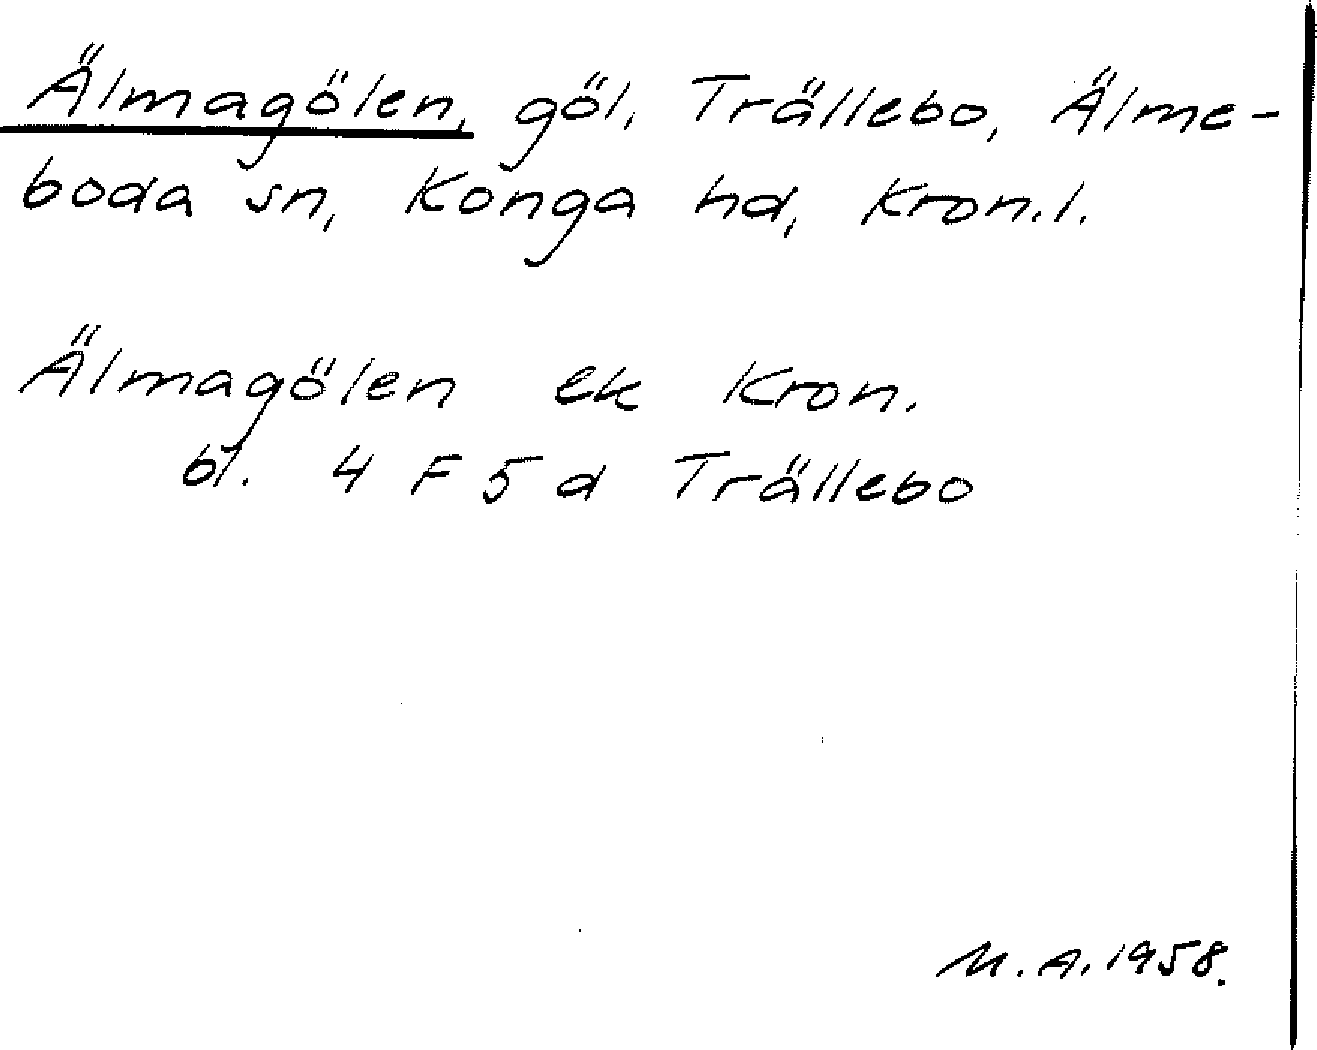 Älmagölen, göl, Trällebo, Älme-
boda sn, Konga hd, Kron.l.
Älmagölen ek Kron.
bl. 4 F 5 d Trällebo
M.A. 1958.